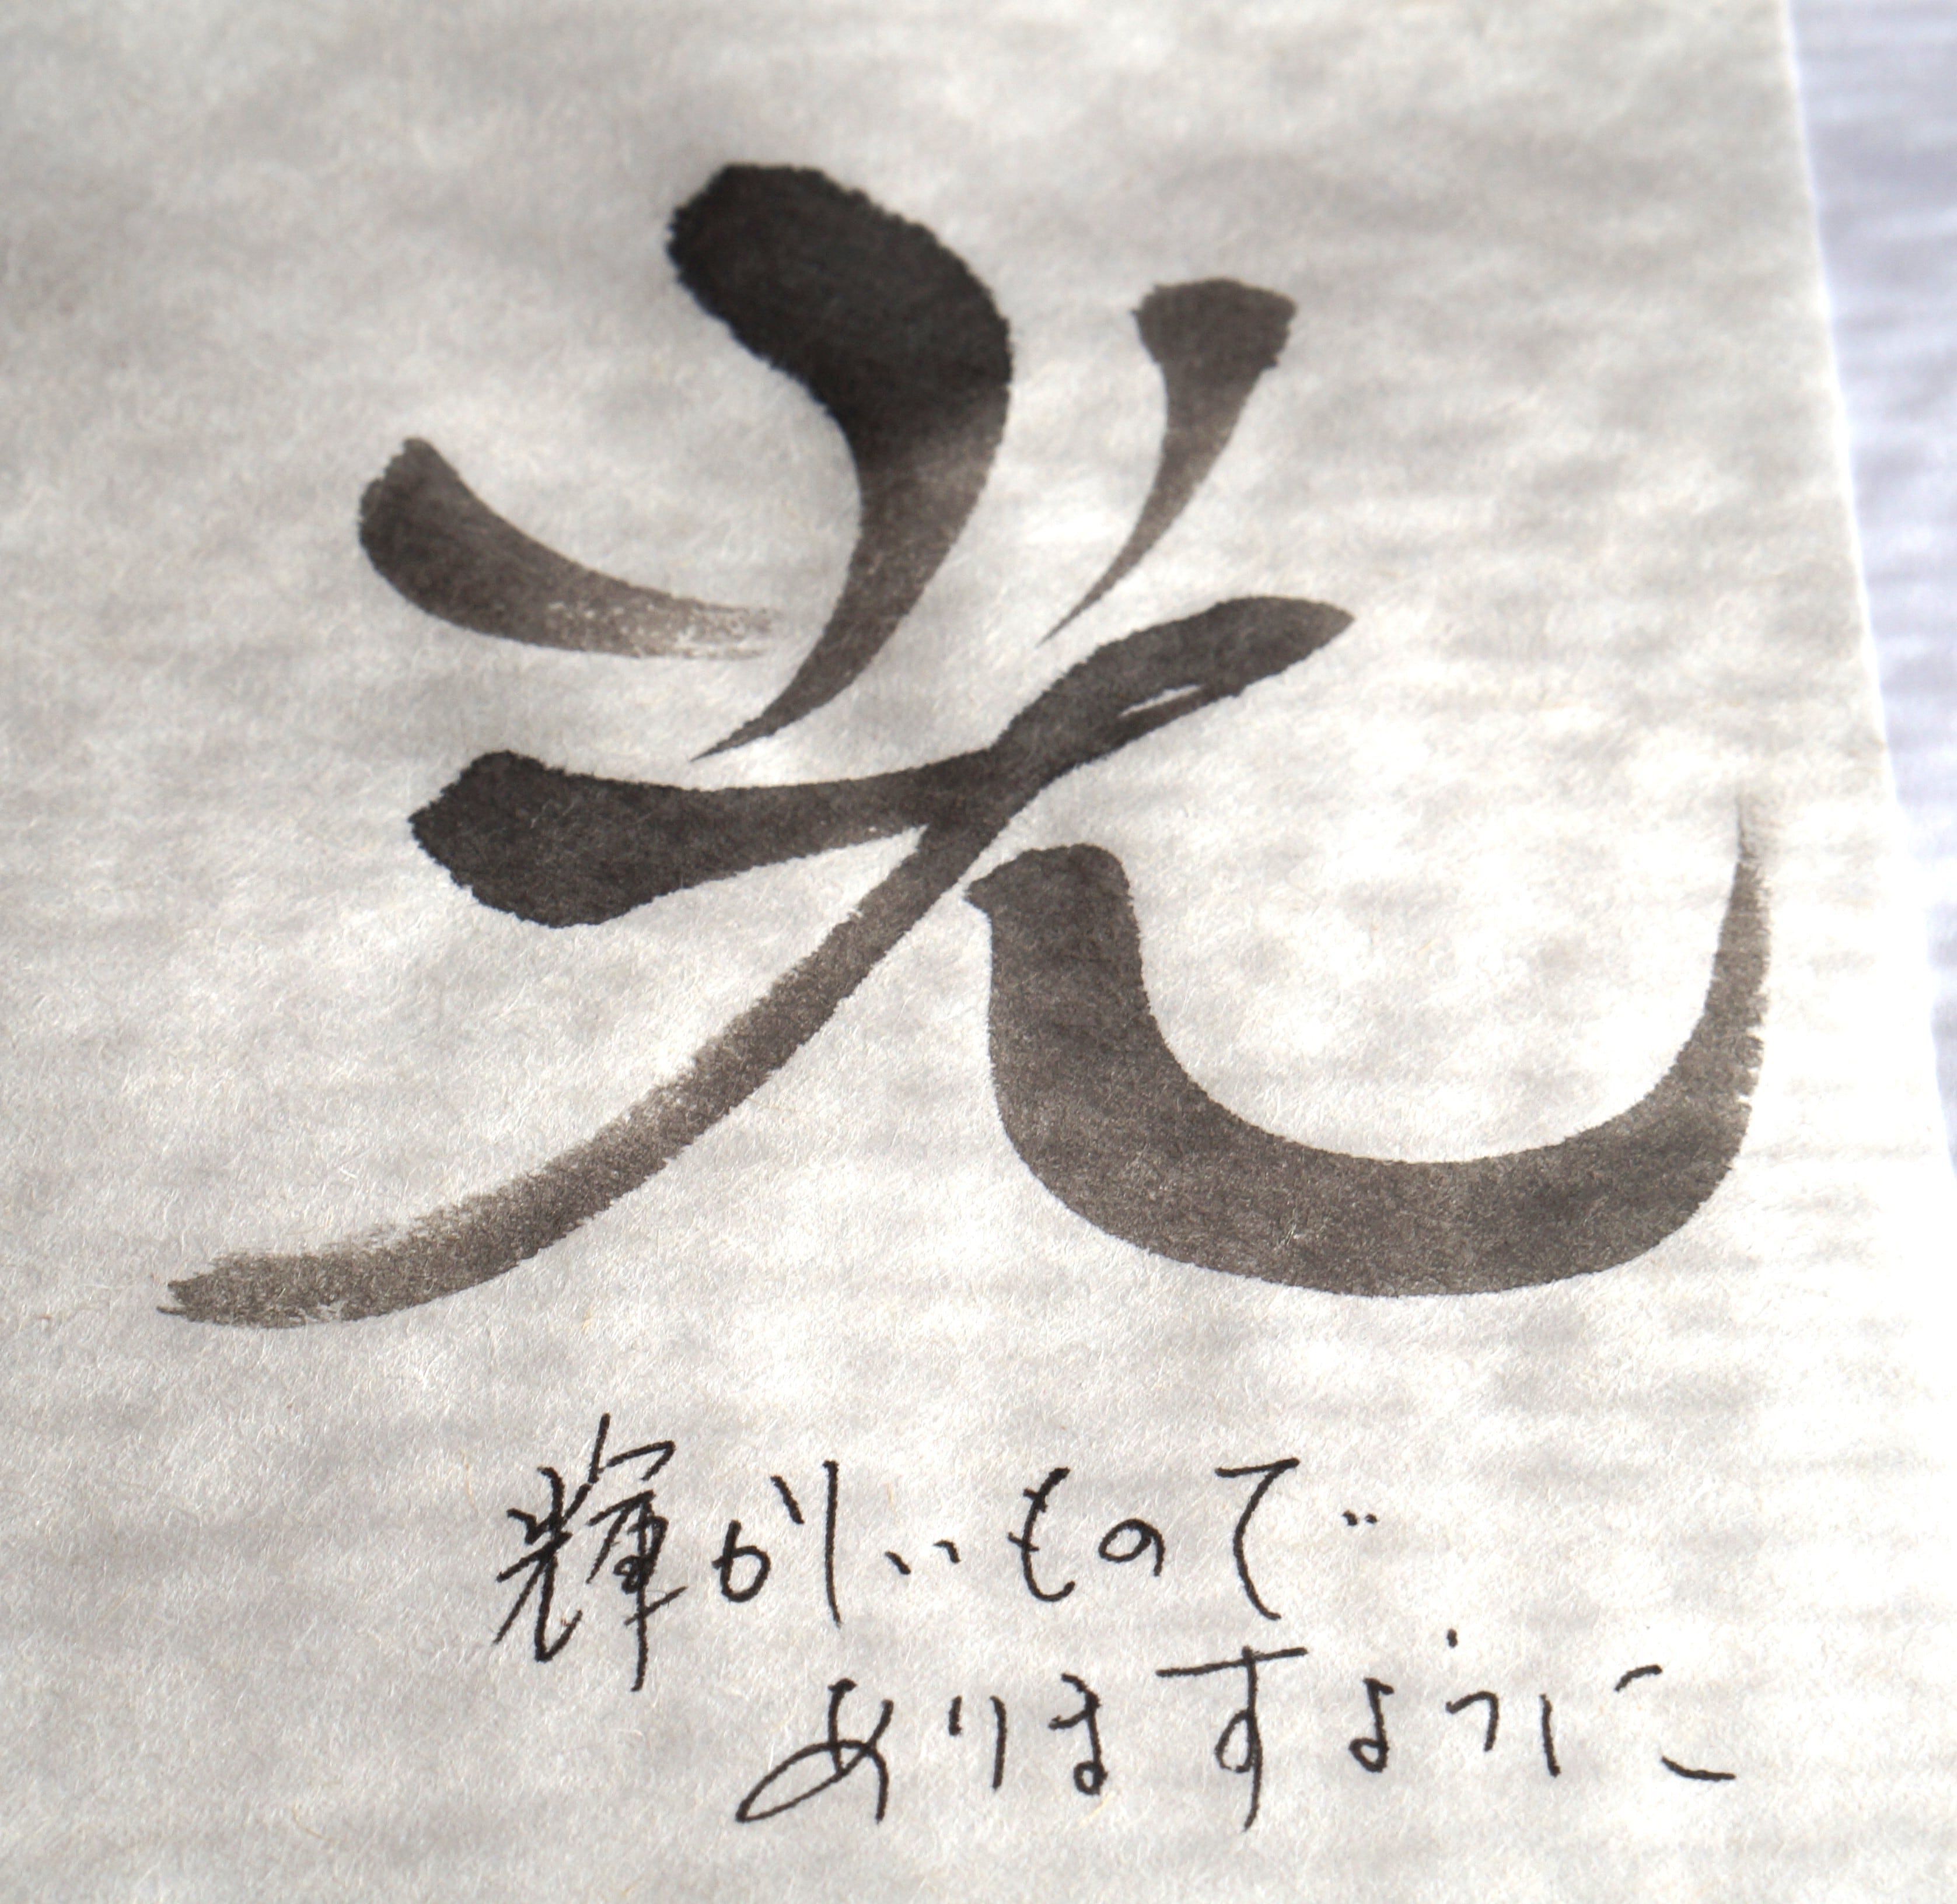 光
輝かしいもので
ありますように